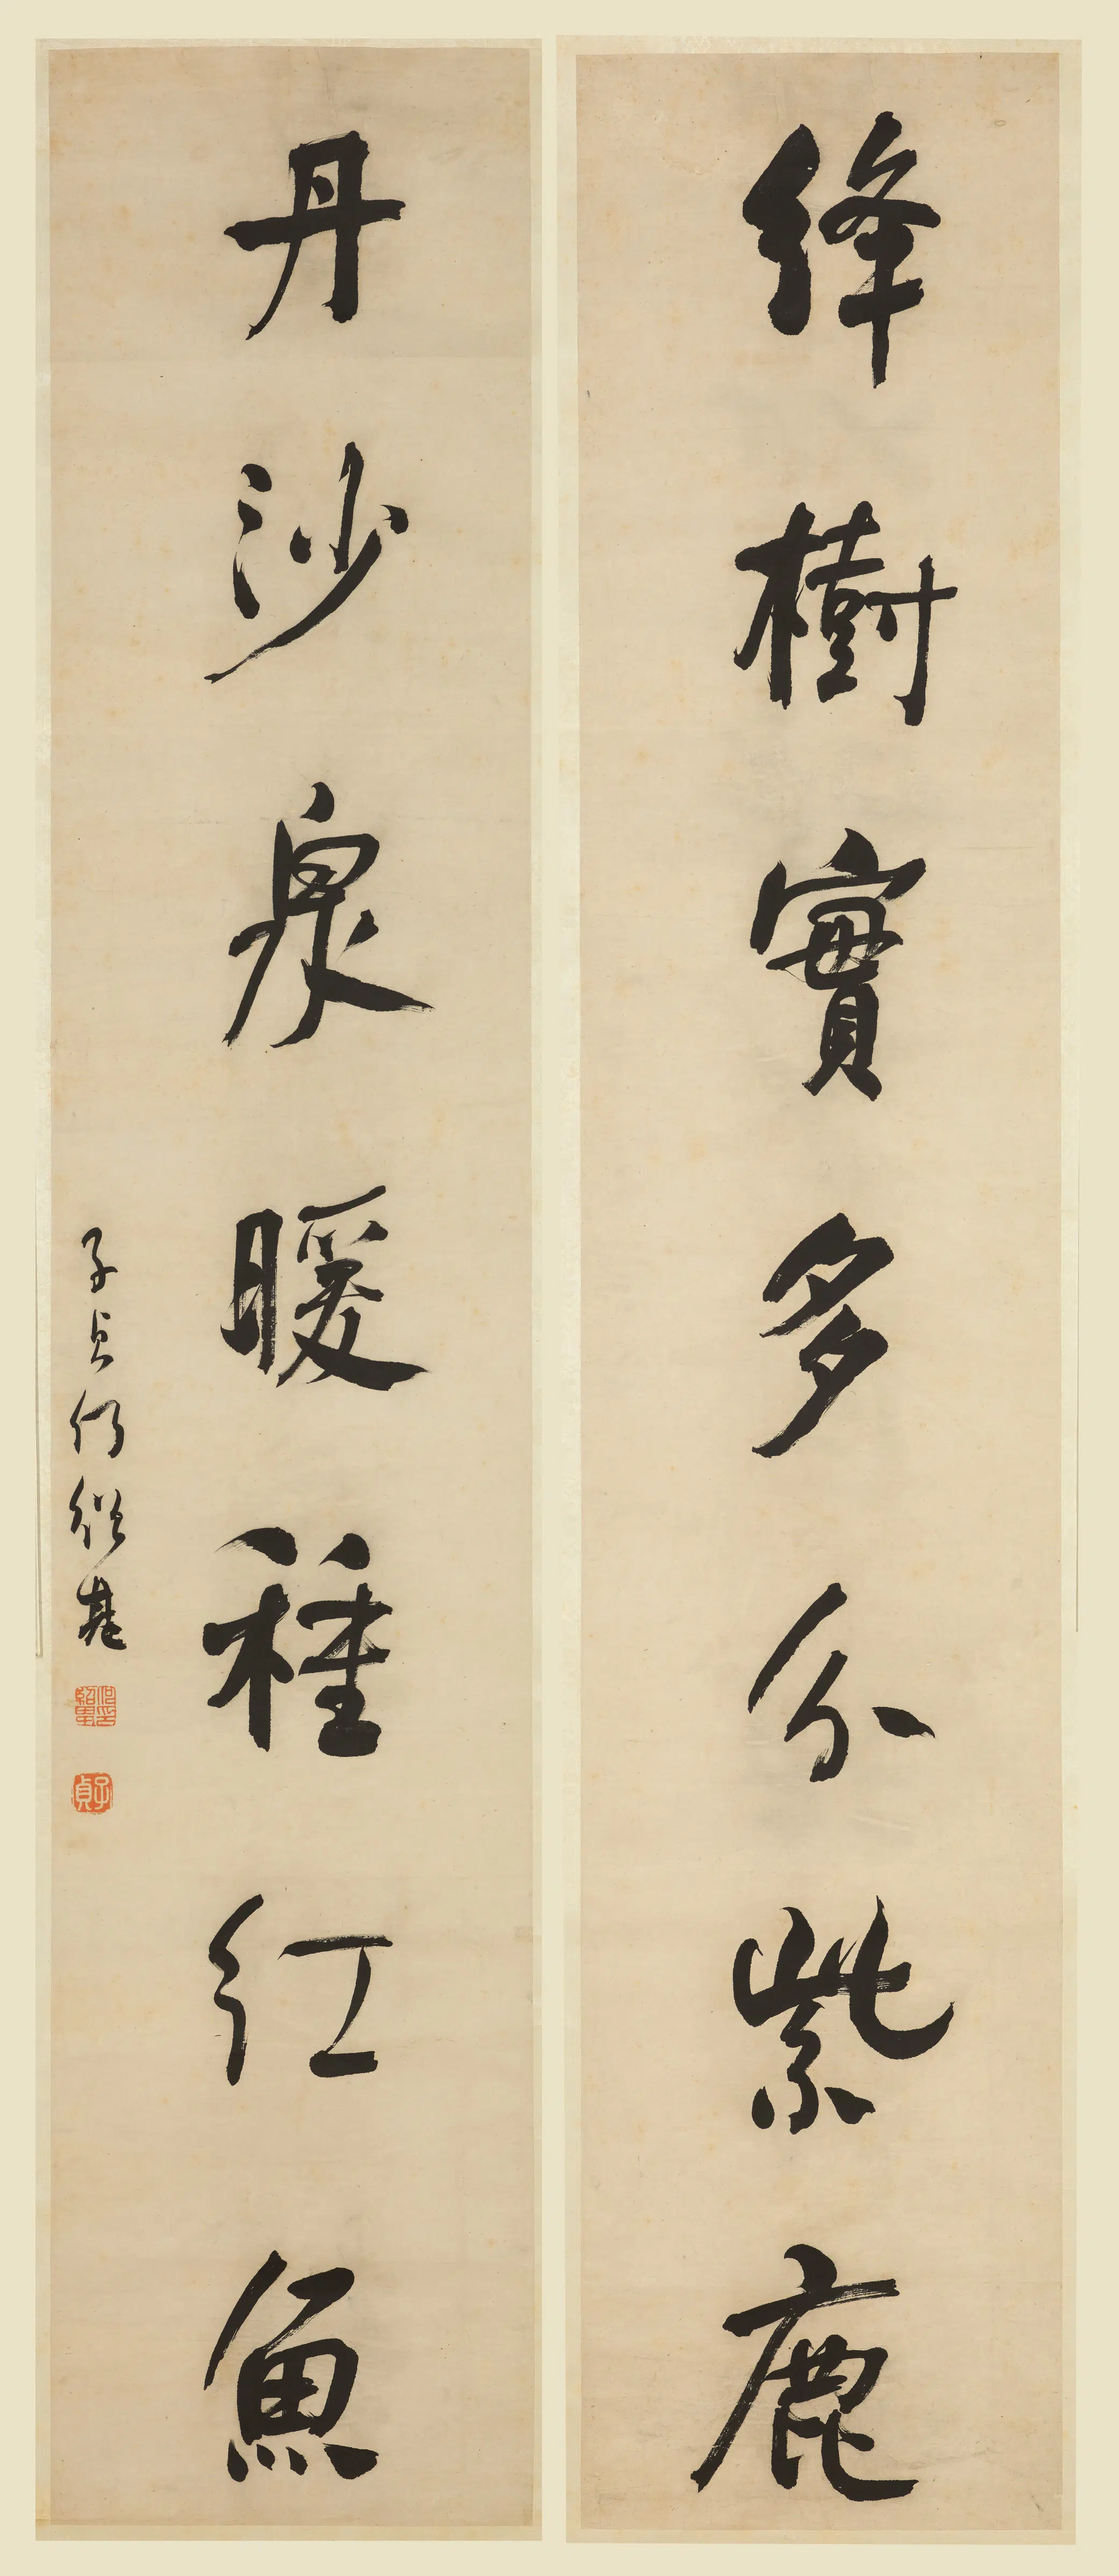 絳樹實多分紫鹿
丹沙泉暖種紅魚
子貞何紹基
何紹基印
子貞